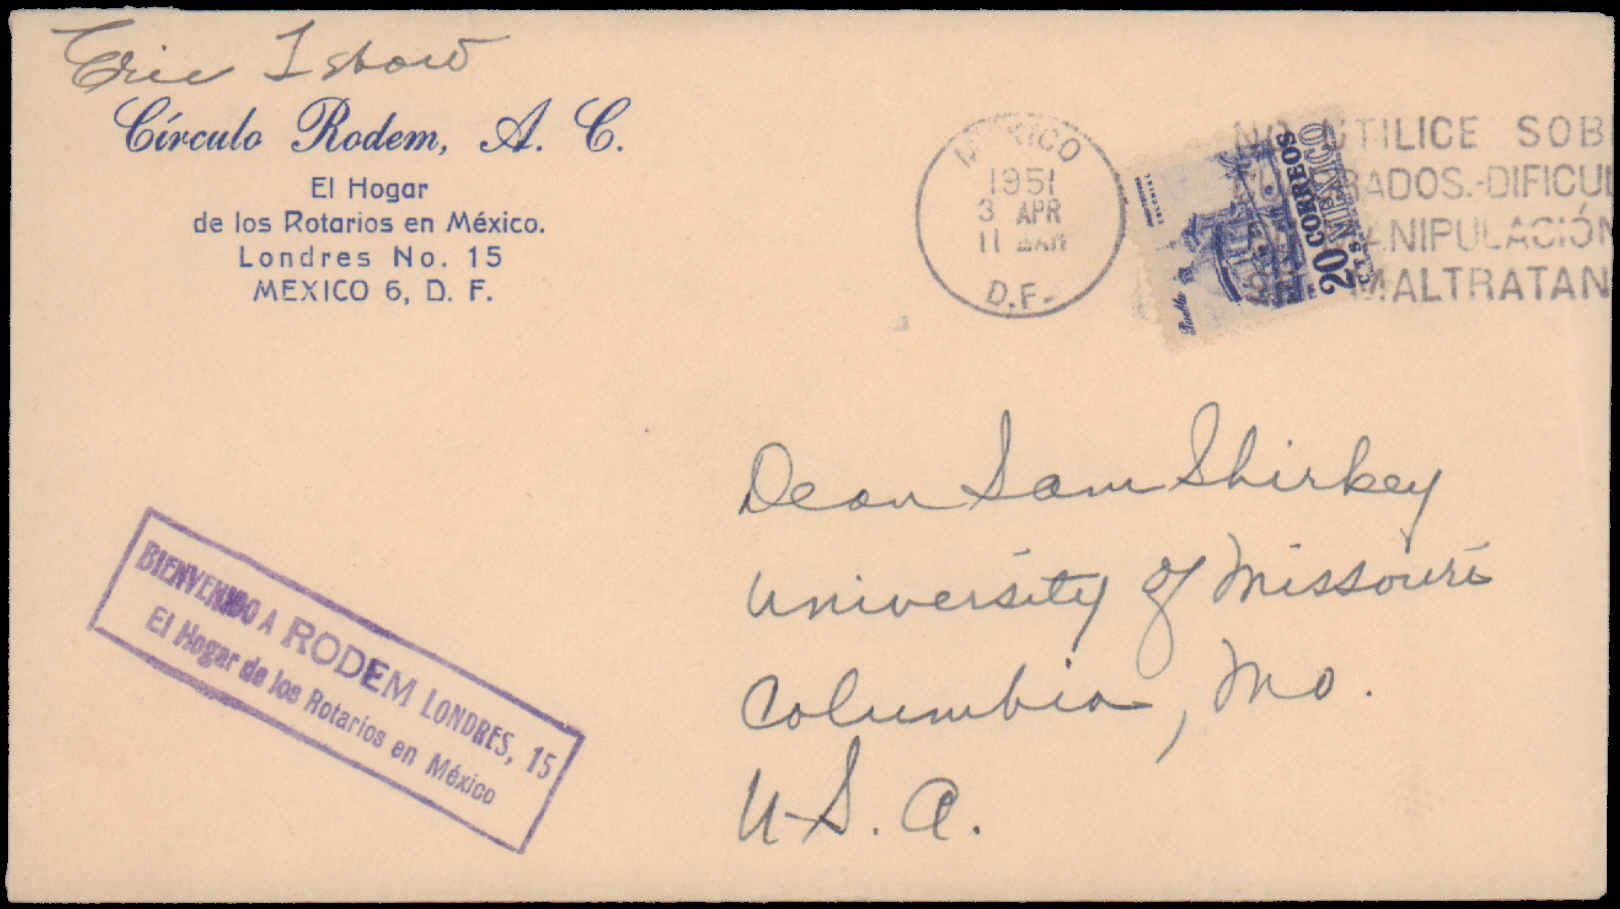 Eric
Círculo Rodem, A. C.
El Hogar
de los Rotarios en México.
Londres No. 15
MEXICO 6, D. F.
MEXICO
1951
3 APR
11
D.F.
NO UTILICE SOB
DIFICUL
MANIPULACIÓN
MALTRATAN
CORREOS
MEXICO
20 CTS
Puebla
Dean Sam Shirkey
University of Missouri
Columbia, Mo.
U.S.A.
BIENVENIDO A RODEM LONDRES, 15
El Hogar de los Rotarios en México